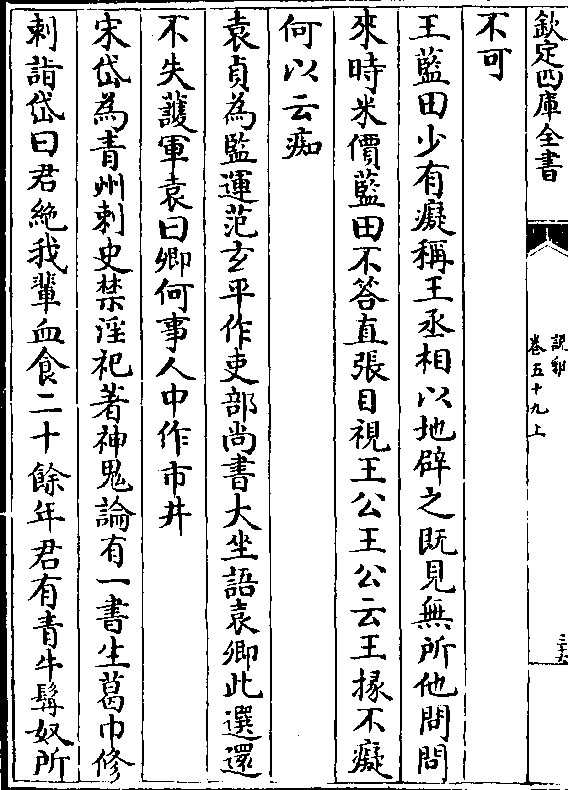 欽定四庫全書
說郛
卷五十九上
不可
王藍田少有癡稱王丞相以地辟之既見無所他問問
來時米價藍田不答直張目視王公王公云王掾不癡
何以云痴
袁貞為監運范玄平作吏部尚書大坐語袁卿此選還
不失護軍袁曰卿何事人中作市井
宋岱為青州刺史禁淫祀著神鬼論有一書生葛巾修
刺詣岱曰君絶我輩血食二十餘年君有青牛髯奴所